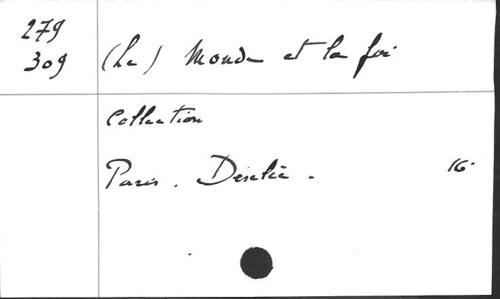 279
309 (Le) Monde et la foi
Collection
Paris. Desclée. 16